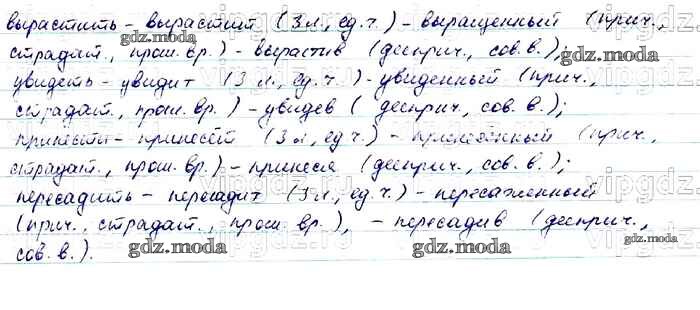 вырастить – вырастит (3 л., ед. ч.) – выращенный (прич.,
страдат., прош. вр.) – вырастив (дееприч., сов. в.);
увидеть – увидит (3 л., ед. ч.) – увиденный (прич.,
страдат., прош. вр.) – увидев (дееприч., сов. в.);
принести – принесёт (3 л., ед. ч.) – принесённый (прич.,
страдат., прош. вр.) – принеся (дееприч., сов. в.);
пересадить – пересадит (3 л., ед. ч.) – пересаженный
(прич., страдат., прош. вр.), – пересадив (дееприч.,
сов. в.).
gdz.moda
gdz.moda
gdz.moda
gdz.moda
gdz.moda
gdz.moda